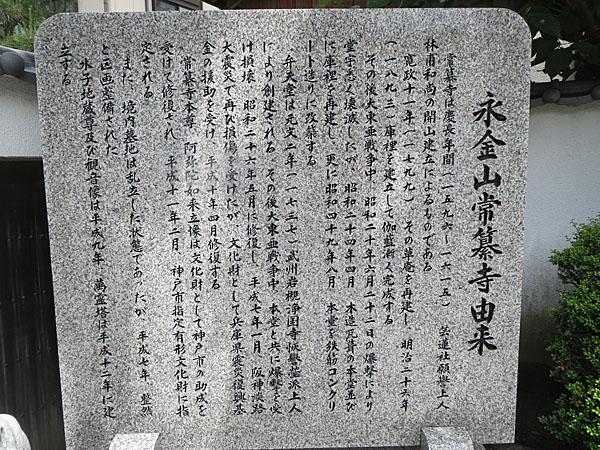 永金山常纂寺由来
常纂寺は慶長年間（一五九六～一六一五） 芸蓮社願誉上人
林甫和尚の開山建立によるものである
寛政十一年（一七九九）、その草庵を再建し、明治二十六年
（一八九三）庫裡を建立して伽藍漸く完成する
その後大東亜戦争中、昭和二十年六月二十二日の爆撃により、
堂宇悉く壊滅したが、昭和二十四年四月 木造瓦葺の本堂並び
に庫裡を再建し、更に昭和四十九年八月 本堂を鉄筋コンクリ
ート造りに改築する
弁天堂は元文二年（一七三七）武州岩槻浄国寺候誉葦派上人
により創建される その後大東亜戦争中、本堂と共に爆撃を受
け損壊、昭和二十六年五月に修復し、平成七年一月、阪神淡路
大震災で再び損傷を受けたが、文化財として兵庫県震災復興基
金の援助を受け、平成十年四月修復する
常纂寺本尊、阿弥陀如来立像は文化財として神戸市の助成を
受けて修復され、平成十一年二月、神戸市指定有形文化財に指
定される
また、境内墓地は乱立した状態であったが、平成七年、整然
と区画整備された
水子地蔵尊及び観音像は平成九年、萬霊塔は平成十二年に建
立する